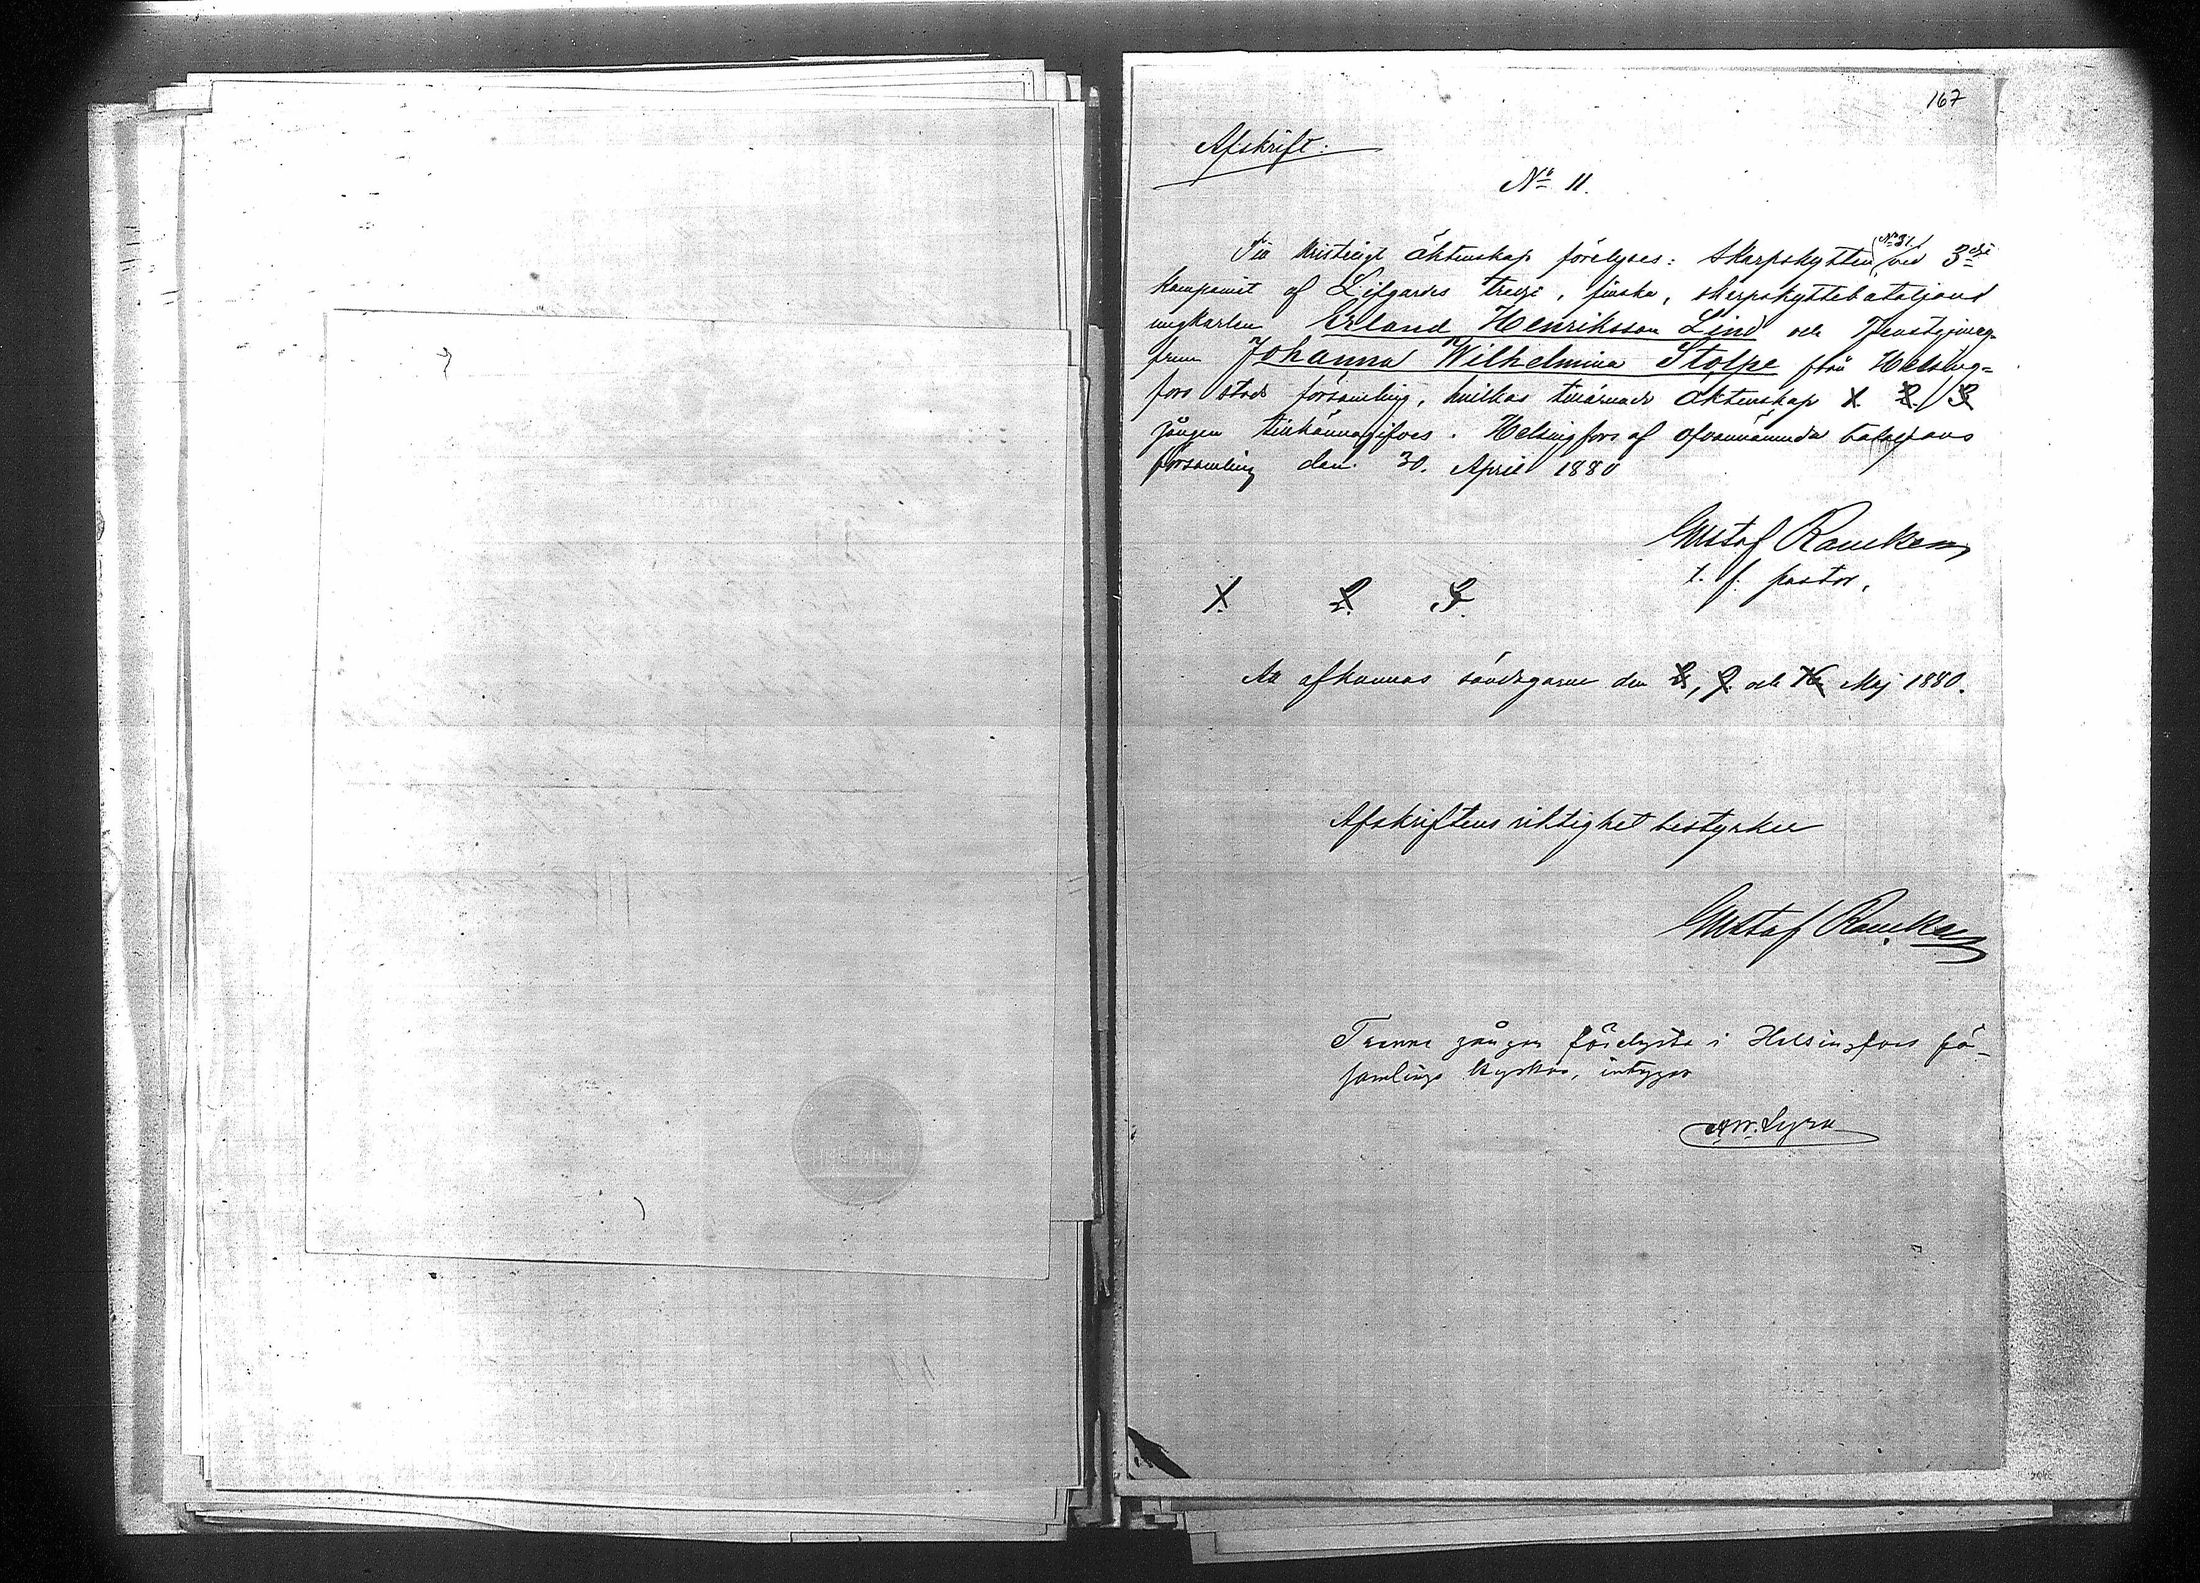 167
Afskrift:
No 11.
Till kristeligt äktenskap förelyses: Skarpskytten (No 31.) wid 3dje
kompaniet af Lifgardes tredje, finska, skarpskyttebataljons
ungkarlen Erland Henriksson Lind och Jenstejung-
frun Johanna Wilhelmina Stolpe från Helsing=
fors stads församling, hvilkas tillärnade äktenskap 1. 2. 3
gången tillkännagifves. Helsingfors af ofvannämnda bataljons
församling den 30. April 1880
Gustaf Rancken
t. f. pastor.
1. 2. 3.
Att afkunnas söndagarne den 2, 9. och 16 Maj 1880.
Afskriftens riktighet bestyrker
Gustaf Rancken
Trenne gånger förelysta i Helsingfors för-
samlings kyrkor, intygar
A. W. Lyra